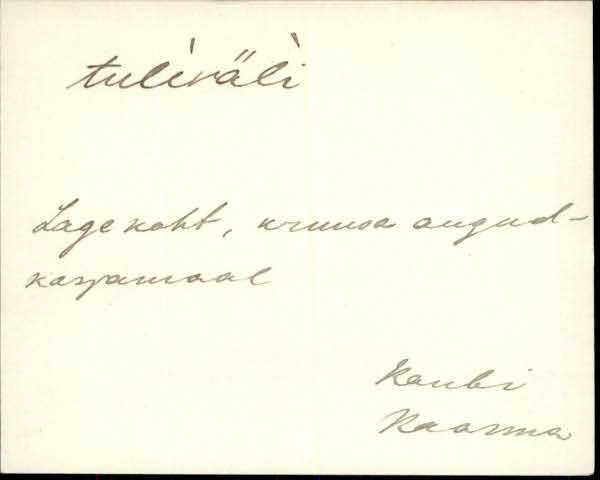 tuliväli
Lage koht, kruusa augud-
karjamaal
Kaubi
Kaarma